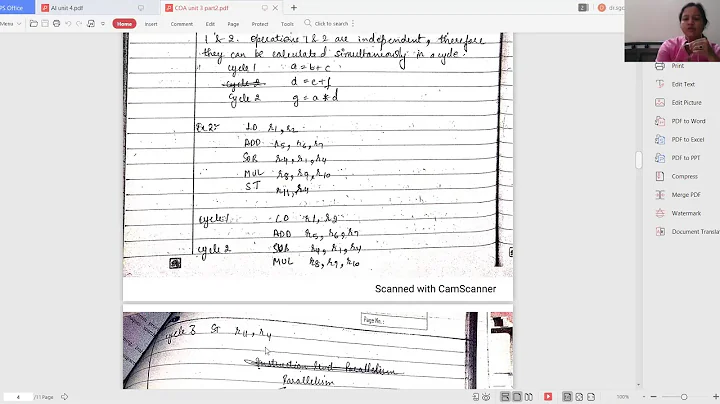 PS Office
AI unit 4.pdf
COA unit 3 part2.pdf
2
dr.sgc
Menu
Home
Insert
Comment
Edit
Page
Protect
Tools
Click to search
1 & 2. Operations 1 & 2 are independent, therefore
they can be calculated simultaneously in a cycle.
cycle 1 a = b + c
cycle 2 d = e + f
cycle 2 g = a * d
Ex 2:- LD r1, r2
ADD r5, r6, r7
SUB r4, r1, r4
MUL r8, r9, r10
ST r11, r4
cycle 1 LD r1, r2
ADD r5, r6, r7
cycle 2 SUB r4, r1, r4
MUL r8, r9, r10
Scanned with CamScanner
Page No.:
cycle 3 ST r11, r4
Instruction level Parallelism
Parallelism
Print
Edit Text
Edit Picture
PDF to Word
PDF to Excel
PDF to PPT
Compress
Merge PDF
Watermark
Document Translat
4 /11 Page
100%